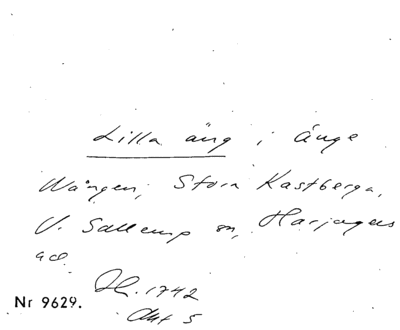 Lilla äng i änge
Wången, Stora Kastberga,
V. Sallerup sn, Harjagers
hd.
Nr 9629.
1742
Akt 5